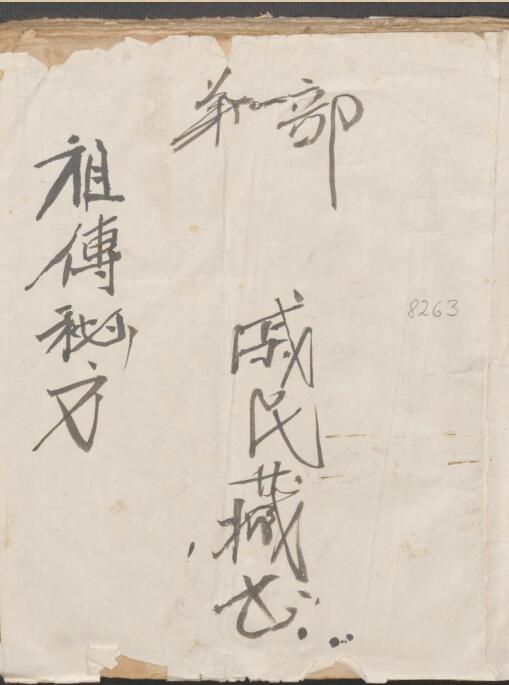 第一部
8263
戚民藏书
祖傳秘方